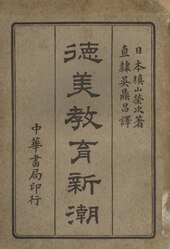 日本槙山榮次著
直隸吳鼎昌譯
德美教育新潮
中華書局印行